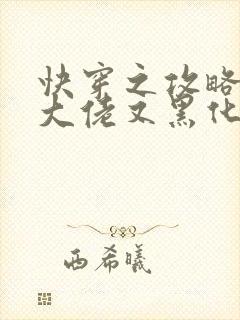 快穿之攻略
大佬又黑化
西希曦